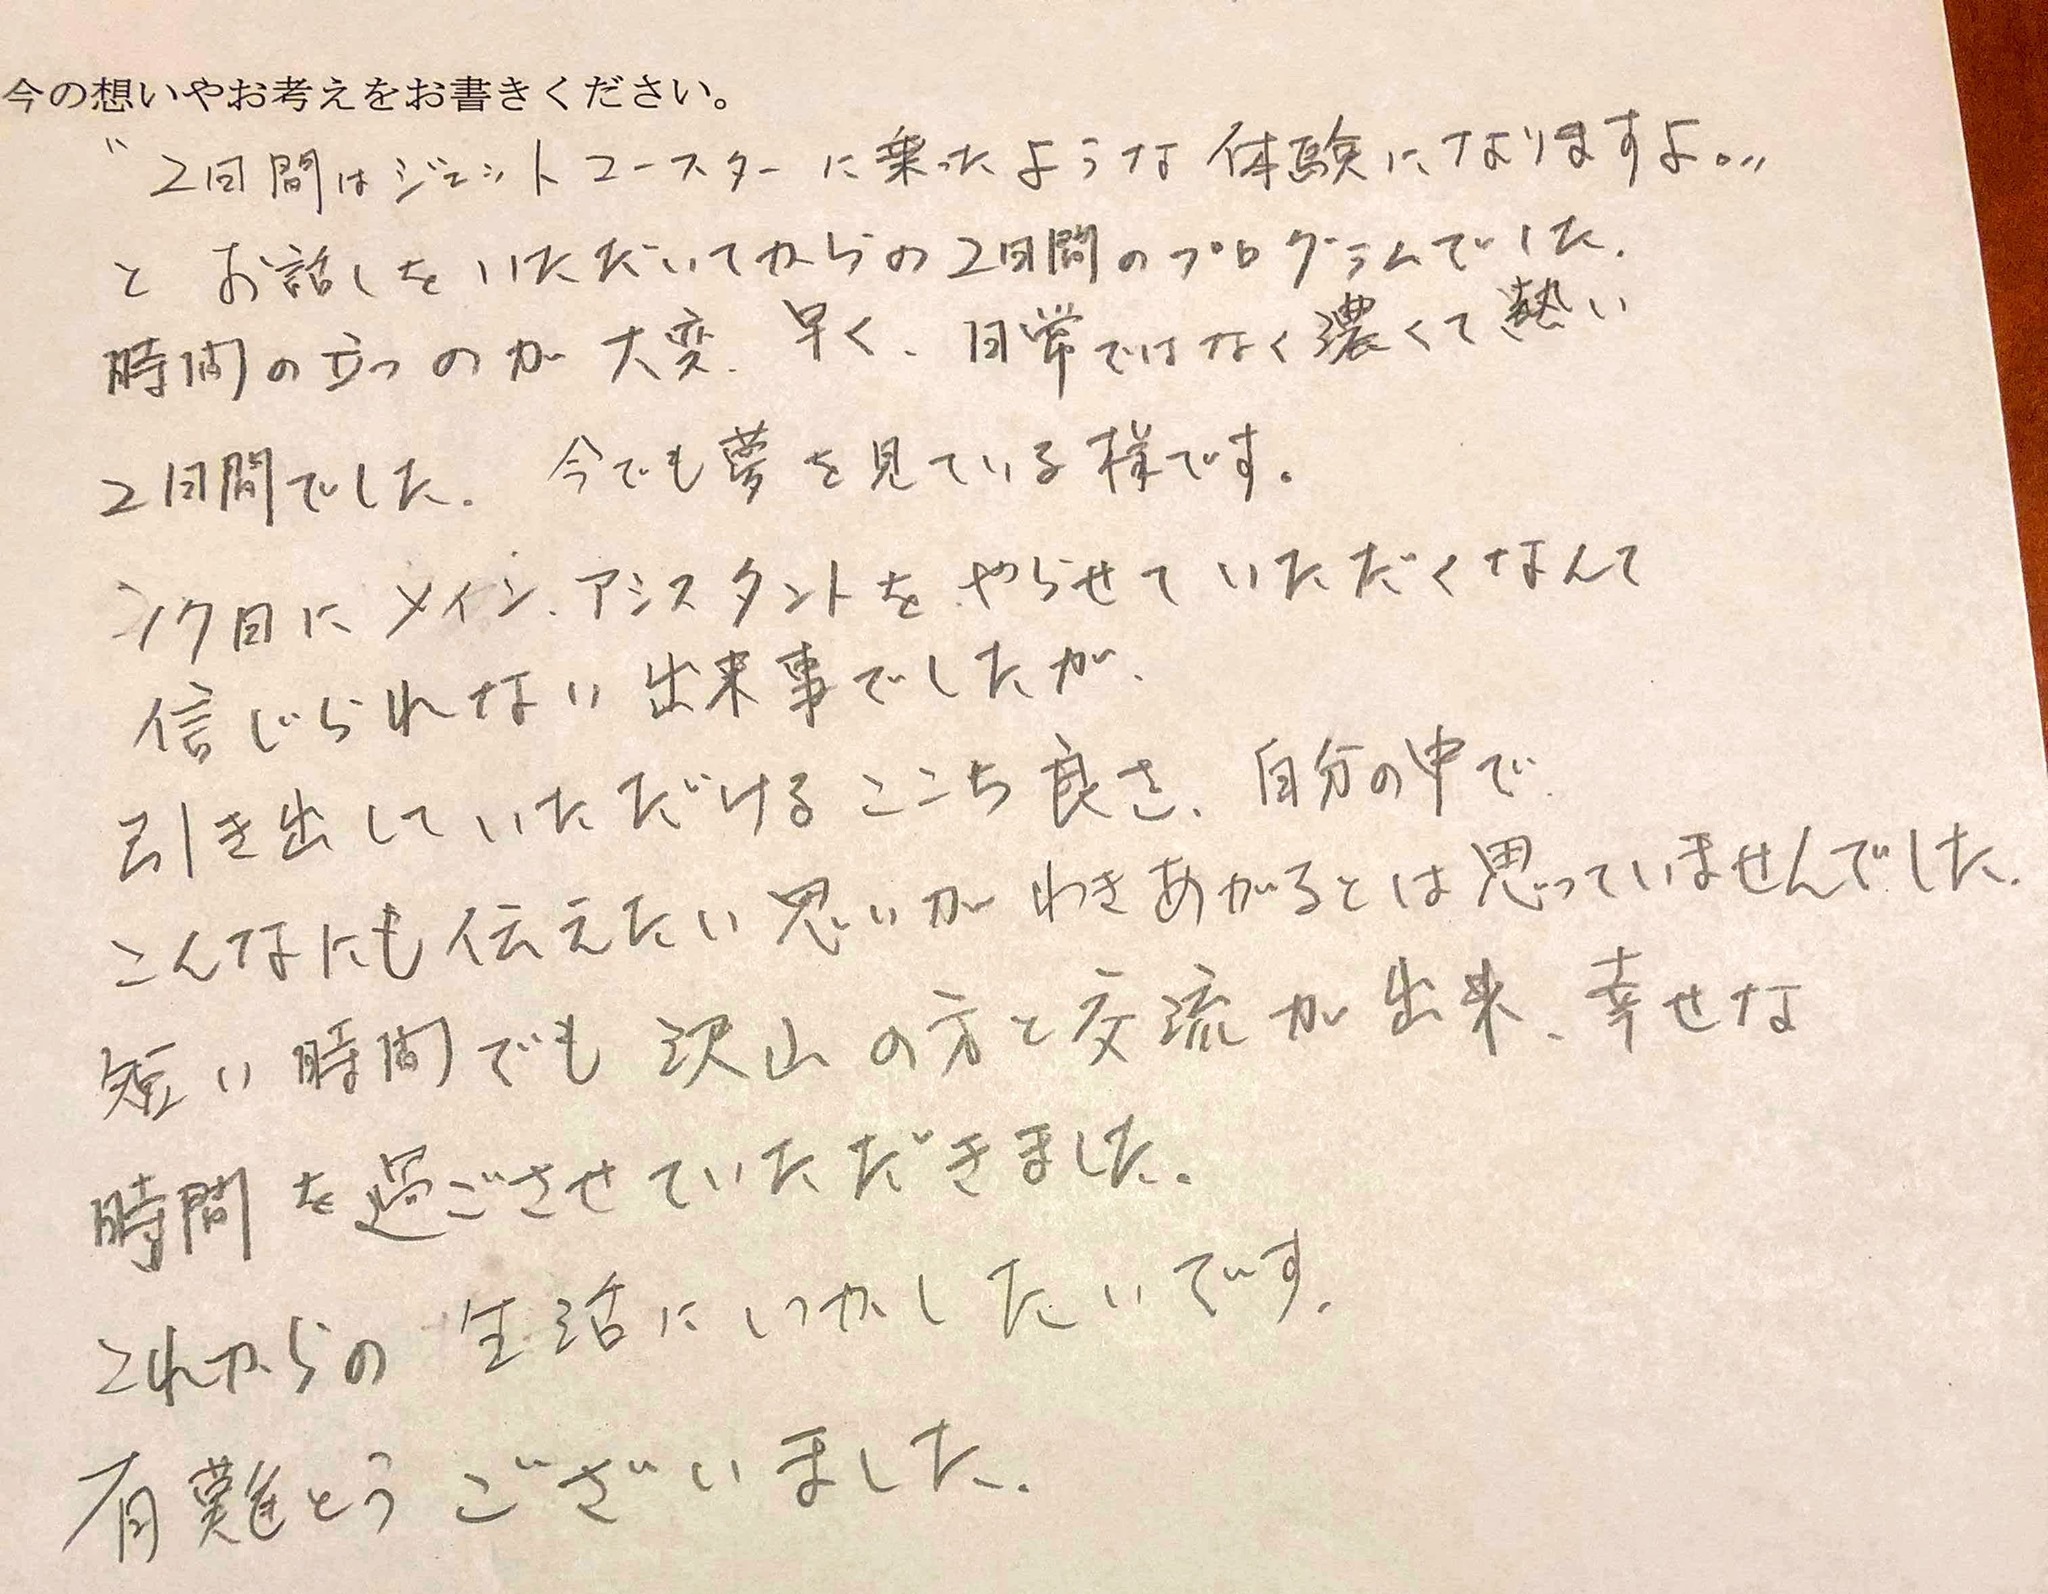 今の想いやお考えをお書きください。
"2日間はジェットコースターに乗ったような体験になりますよ。"
とお話しをいただいてからの2日間のプログラムでした。
時間の立つのが大変早く、日常ではなく濃くて熱い
2日間でした。今でも夢を見ている様です。
目にメイン、アシスタントをやらせていただくなんて
信じられない出来事でしたが、
引き出していただけるここち良さ、自分の中で
こんなにも伝えたい思いがわきあがるとは思っていませんでした。
短い時間でも沢山の方と交流が出来、幸せな
時間を過ごさせていただきました。
これからの生活にいかしたいです。
有難とうございました。